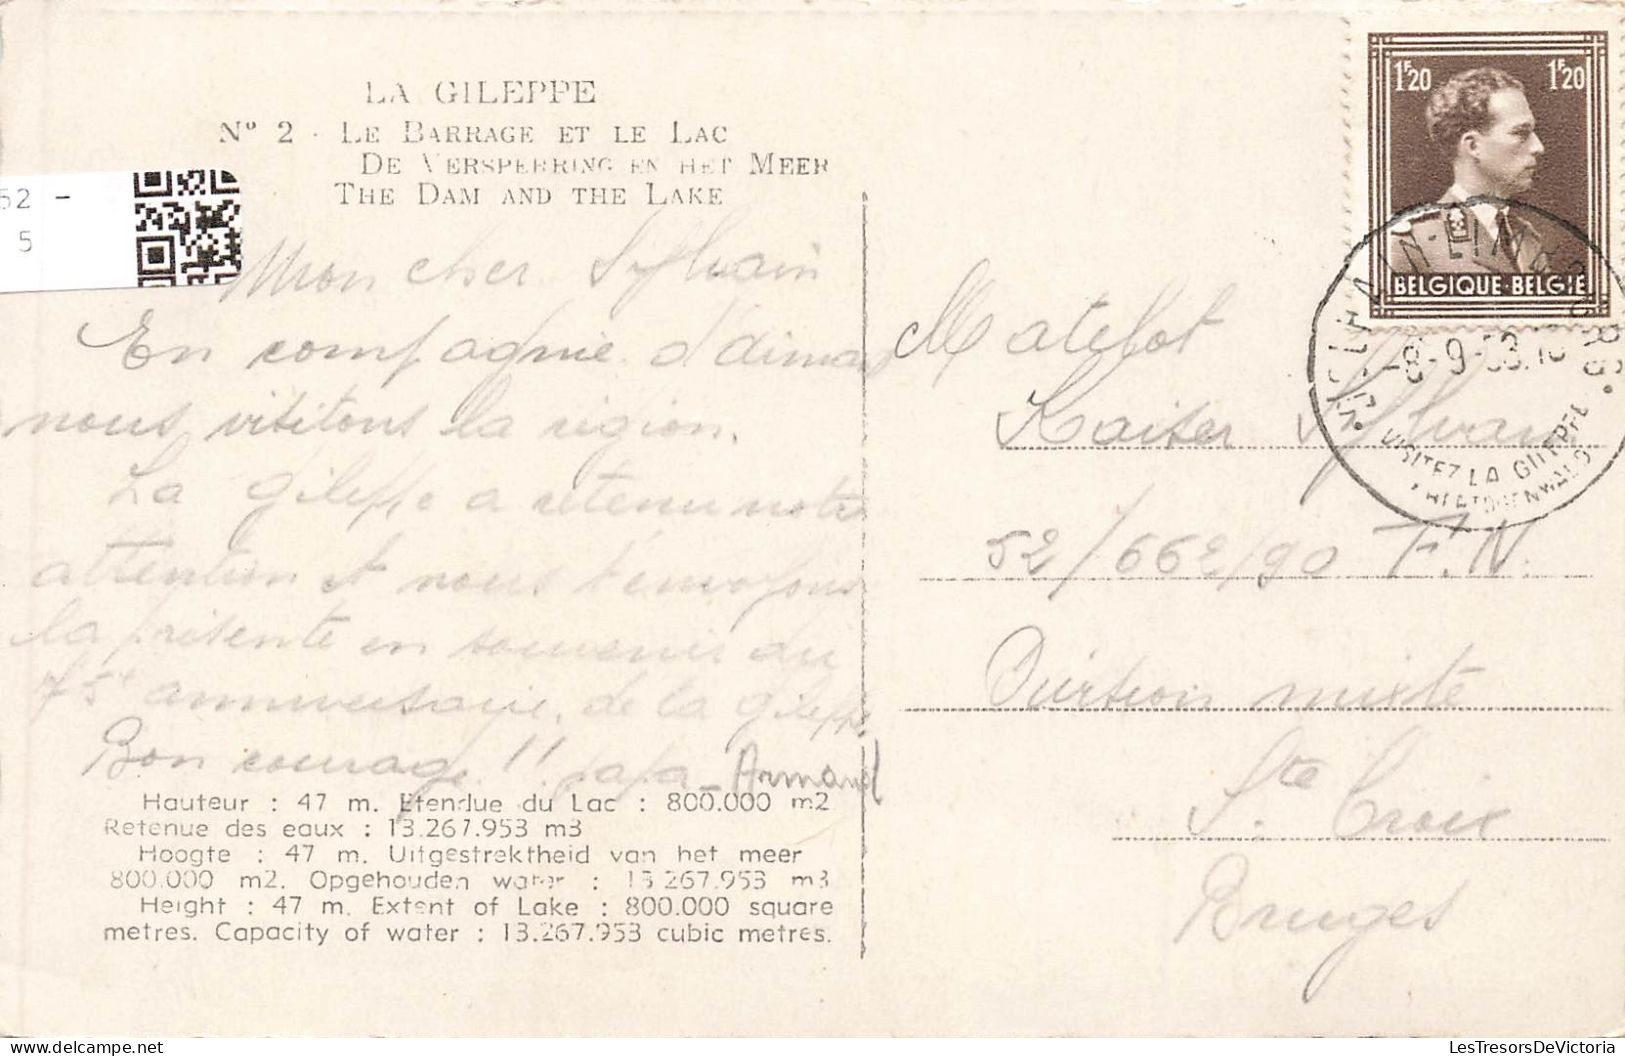 LA GILEPPE
Nº 2 - LE BARRAGE ET LE LAC
DE VERSPERRING EN HET MEER
THE DAM AND THE LAKE
52 -
5
Mon cher Sylvain
En compagnie d'aimas
nous visitons la région.
La gileppe a retenu notre
attention et nous t'envoyons
la présente en souvenir du
75e anniversaire de la gileppe.
Bon courage !! papa - Armand
Hauteur : 47 m. Etendue du Lac : 800.000 m2
Retenue des eaux : 13.267.953 m3
Hoogte : 47 m. Uitgestrektheid van het meer
800.000 m2. Opgehouden water : 13.267.953 m3
Height : 47 m. Extent of Lake : 800.000 square
metres. Capacity of water : 13.267.953 cubic metres.
1F20 1F20
BELGIQUE-BELGIE
-8-9-53
VISITEZ LA GILEPPE
Matelot
Kaiser Sylvain
52/662/90 F.N.
mixte
Ste Croix
Bruges
LesTresorsDeVictoria